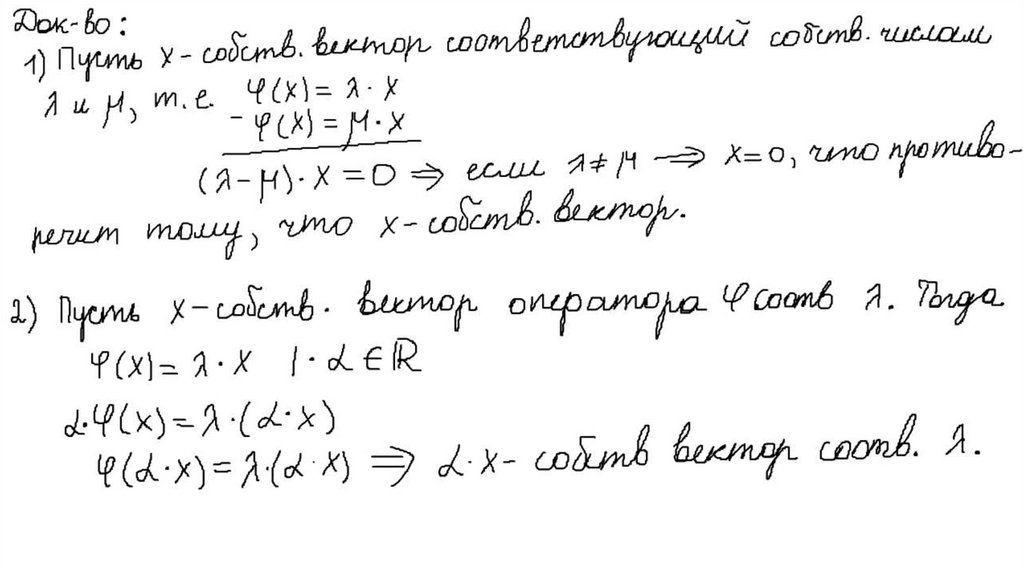 Док-во:
1) Пусть x - собств. вектор соответствующий собств. числам
λ и μ, т.е. φ(x) = λ · x
- φ(x) = μ · x
(λ - μ) · x = 0 ⇒ если λ ≠ μ ⇒ x = 0, что противо-
речит тому, что x - собств. вектор.
2) Пусть x - собств. вектор оператора φ соотв λ. Тогда
φ(x) = λ · x | · α ∈ ℝ
α · φ(x) = λ · (α · x)
φ(α · x) = λ · (α · x) ⇒ α · x - собств вектор соотв. λ.